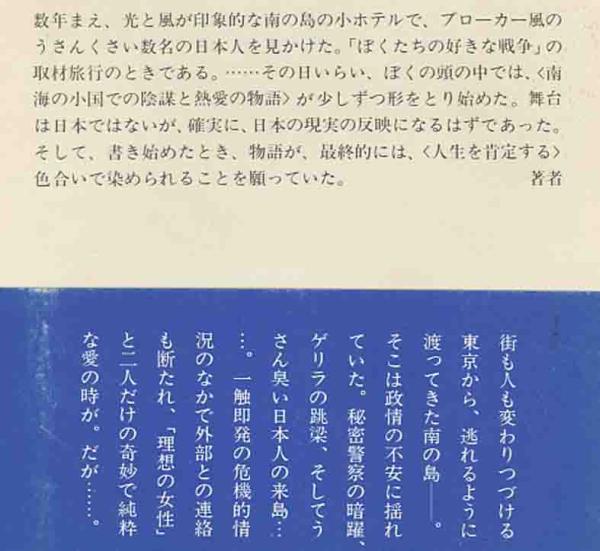 数年まえ、光と風が印象的な南の島の小ホテルで、ブローカー風の
うさんくさい数名の日本人を見かけた。「ぼくたちの好きな戦争」の
取材旅行のときである。……その日いらい、ぼくの頭の中では、〈南
海の小国での陰謀と熱愛の物語〉が少しずつ形をとり始めた。舞台
は日本ではないが、確実に、日本の現実の反映になるはずであった。
そして、書き始めたとき、物語が、最終的には、〈人生を肯定する〉
色合いで染められることを願っていた。 著者
街も人も変わりつづける
東京から、逃れるように
渡ってきた南の島――。
そこは政情の不安に揺れ
ていた。秘密警察の暗躍、
ゲリラの跳梁、そしてう
さん臭い日本人の来島…
…。一触即発の危機的情
況のなかで外部との連絡
も断たれ、「理想の女性」
と二人だけの奇妙で純粋
な愛の時が。だが……。